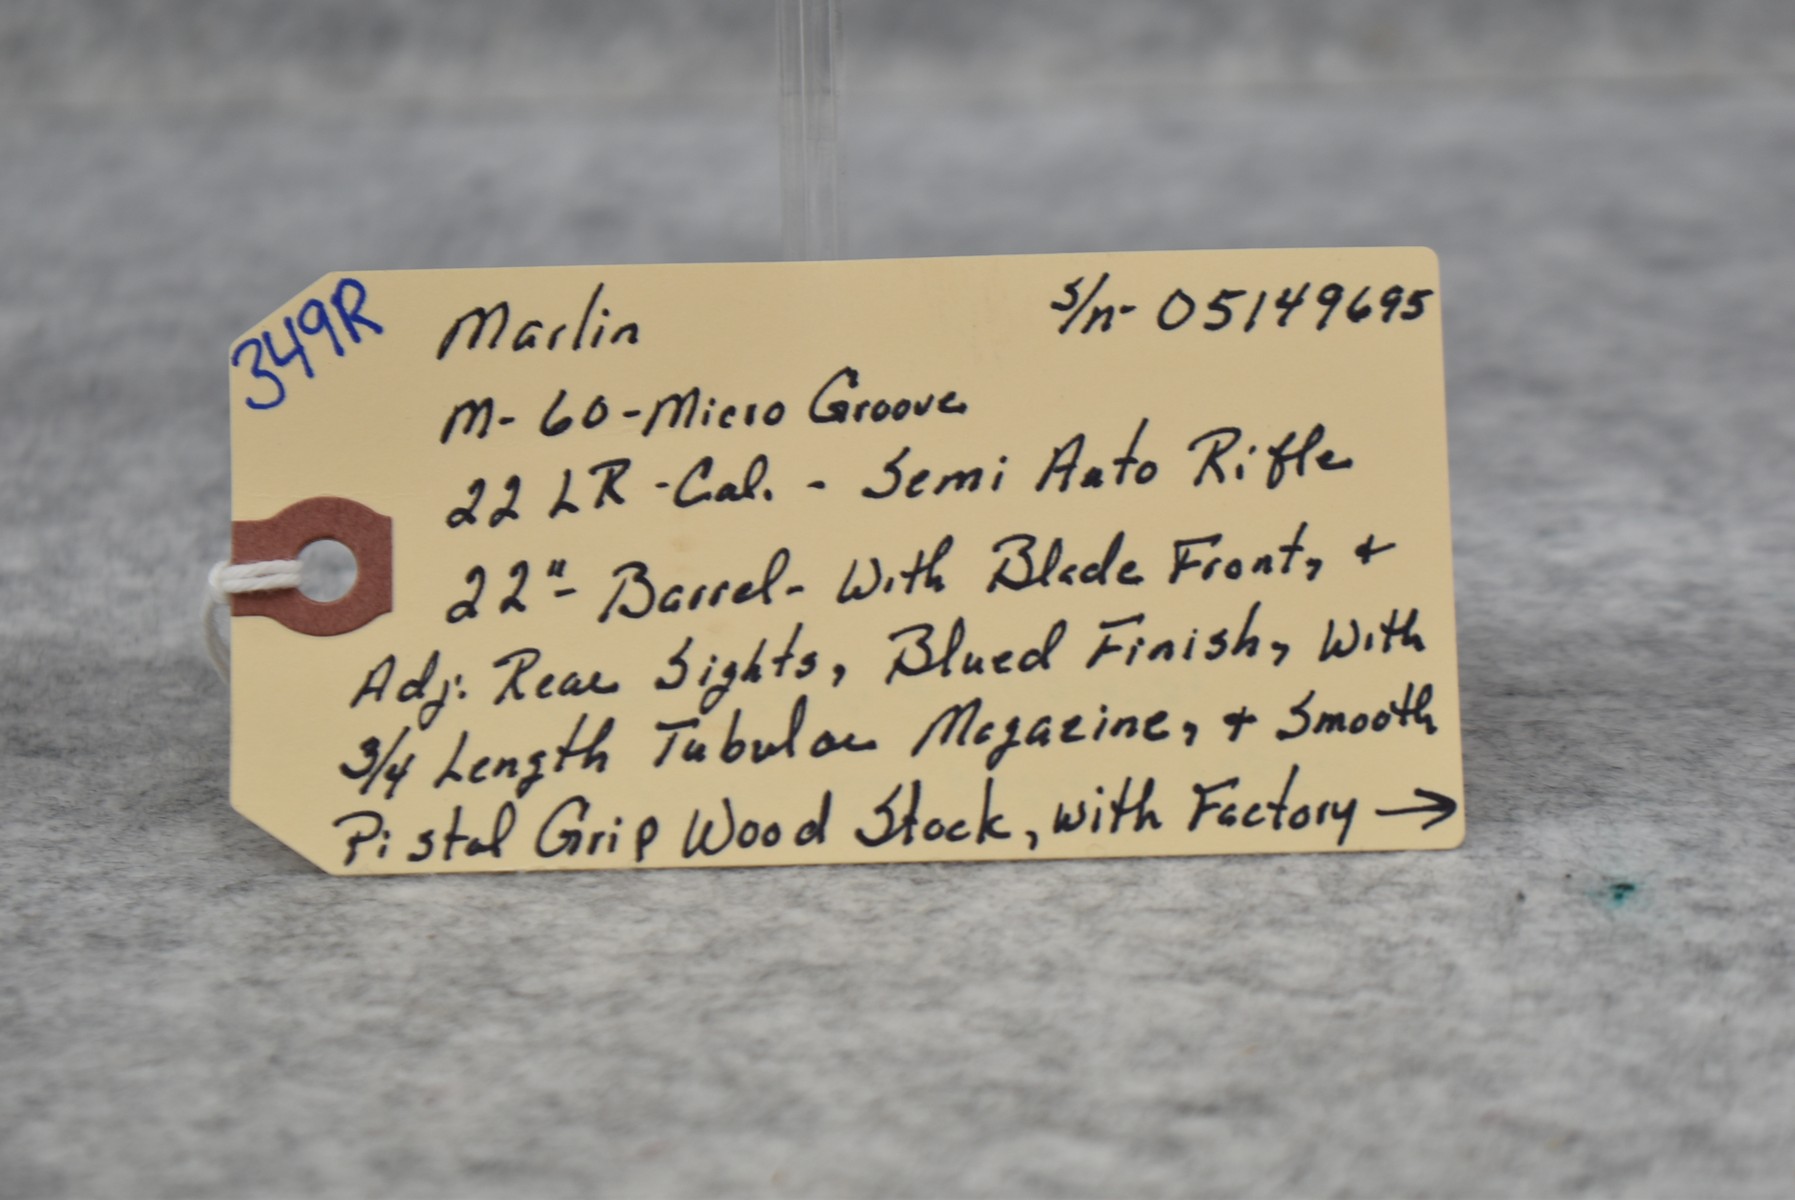 349R
Marlin
S/n- 05149695
M- 60-Micro Groove
22 LR -Cal. - Semi Auto Rifle
22"- Barrel- With Blade Front, +
Adj. Rear Sights, Blued Finish, With
3/4 Length Tubular Magazine, + Smooth
Pistol Grip Wood Stock, with Factory →